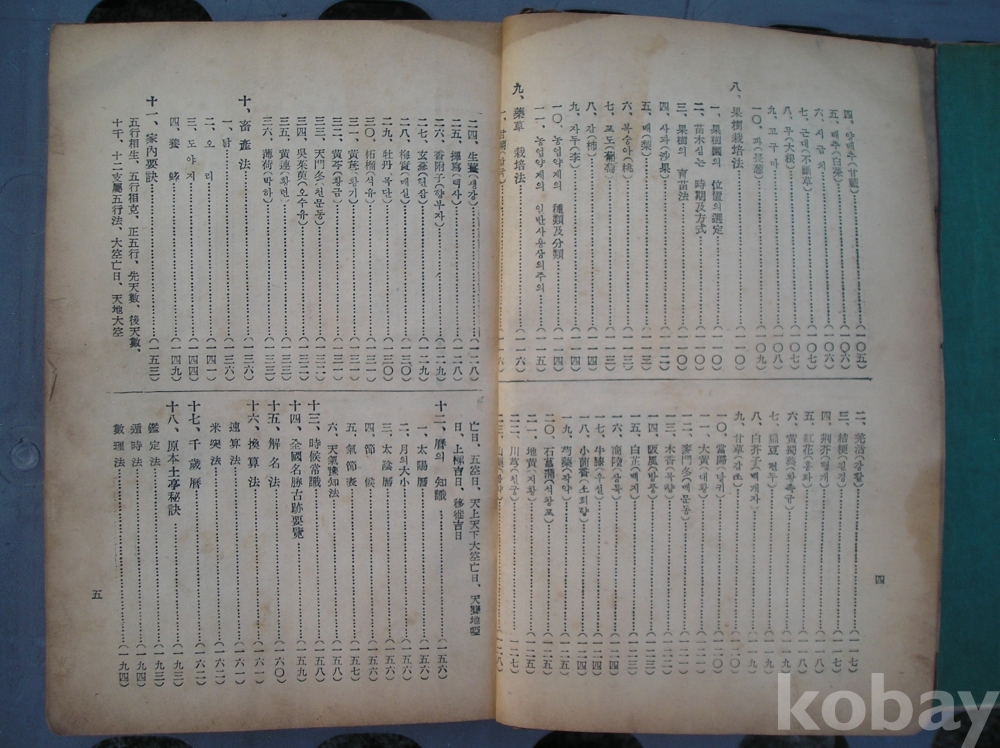 四、양배추(甘藍)……(一〇五)
五、배추(白菜)……(一〇六)
六、시금치……(一〇六)
七、근대(不斷草)……(一〇七)
八、무(大根)……(一〇七)
九、고구마……(一〇八)
一〇、파(葱)……(一〇九)
八、果樹栽培法……(一一〇)
一、果樹園의 位置의 選定……(一一〇)
二、苗木심는 時期及方式……(一一〇)
三、果樹의 育苗法……(一一〇)
四、사과(沙果)……(一一二)
五、배(梨)……(一一三)
六、복숭아(桃)……(一一三)
七、포도(葡萄)……(一一三)
八、감(柿)……(一一四)
九、자두(李)……(一一四)
一〇、농업약제의 種類及分類……(一一四)
一一、농업약제의 일반사용상의주의……(一一五)
九、藥草 栽培法……(一一六)
二、羌活(강활)……(一一七)
三、桔梗(길경)……(一一七)
四、荊芥(형개)……(一一八)
五、紅花(홍화)……(一一八)
六、黃蜀葵(황촉규)……(一一九)
七、扁豆(편두)……(一一九)
八、白芥子(백개자)……(一一九)
九、甘草(감초)……(一二〇)
一〇、當歸(당귀)……(一二〇)
一一、大黃(대황)……(一二一)
一二、麥門冬(맥문동)……(一二一)
一三、木香(목향)……(一二二)
一四、防風(방풍)……(一二二)
一五、白芷(백지)……(一二三)
一六、商陸(상륙)……(一二四)
一七、牛膝(우슬)……(一二四)
一八、小茴香(소회향)……(一二四)
一九、芍藥(작약)……(一二五)
二〇、石菖蒲(석창포)……(一二五)
二一、地黃(지황)……(一二六)
二二、川芎(천궁)……(一二七)
四
二四、生薑(생강)……(一二八)
二五、澤瀉(택사)……(一二八)
二六、香附子(향부자)……(一二九)
二七、玄蔘(현삼)……(一二九)
二八、梅實(매실)……(一三〇)
二九、牡丹(목단)……(一三〇)
三〇、石榴(석유)……(一三一)
三一、黃芪(황기)……(一三一)
三二、黃芩(황금)……(一三一)
三三、天門冬(천문동)……(一三二)
三四、吳茱萸(오수유)……(一三三)
三五、黃連(황련)……(一三三)
三六、薄荷(박하)……(一三三)
十、畜產法……(一三六)
一、닭……(一三六)
二、오리……(一四一)
三、도야지……(一四四)
四、養蜂……(一四九)
十一、家內要訣……(一五三)
五行相生、五行相克、正五行、先天數、後天數、
十干、十二支屬五行法、大空亡日、天地大空
亡日、五空日、天上天下大空亡日、天聾地啞
日、上樑吉日、移徙吉日
十二、曆의 知識……(一五六)
一、太陽曆……(一五六)
二、月의大小……(一五六)
三、太陰曆……(一五六)
四、節候……(一五七)
五、氣節表……(一五七)
六、天氣豫知法……(一五八)
十三、時候常識……(一五八)
十四、全國名勝古跡要覽……(一五九)
十五、解名法……(一六〇)
十六、換算法……(一六一)
速算法……(一六一)
米突法……(一六二)
十七、千歲曆……(一六二)
十八、原本土亭秘訣……(一九三)
鑑定法……(一九三)
遁時法……(一九四)
數理法……(一九四)
五
kobay